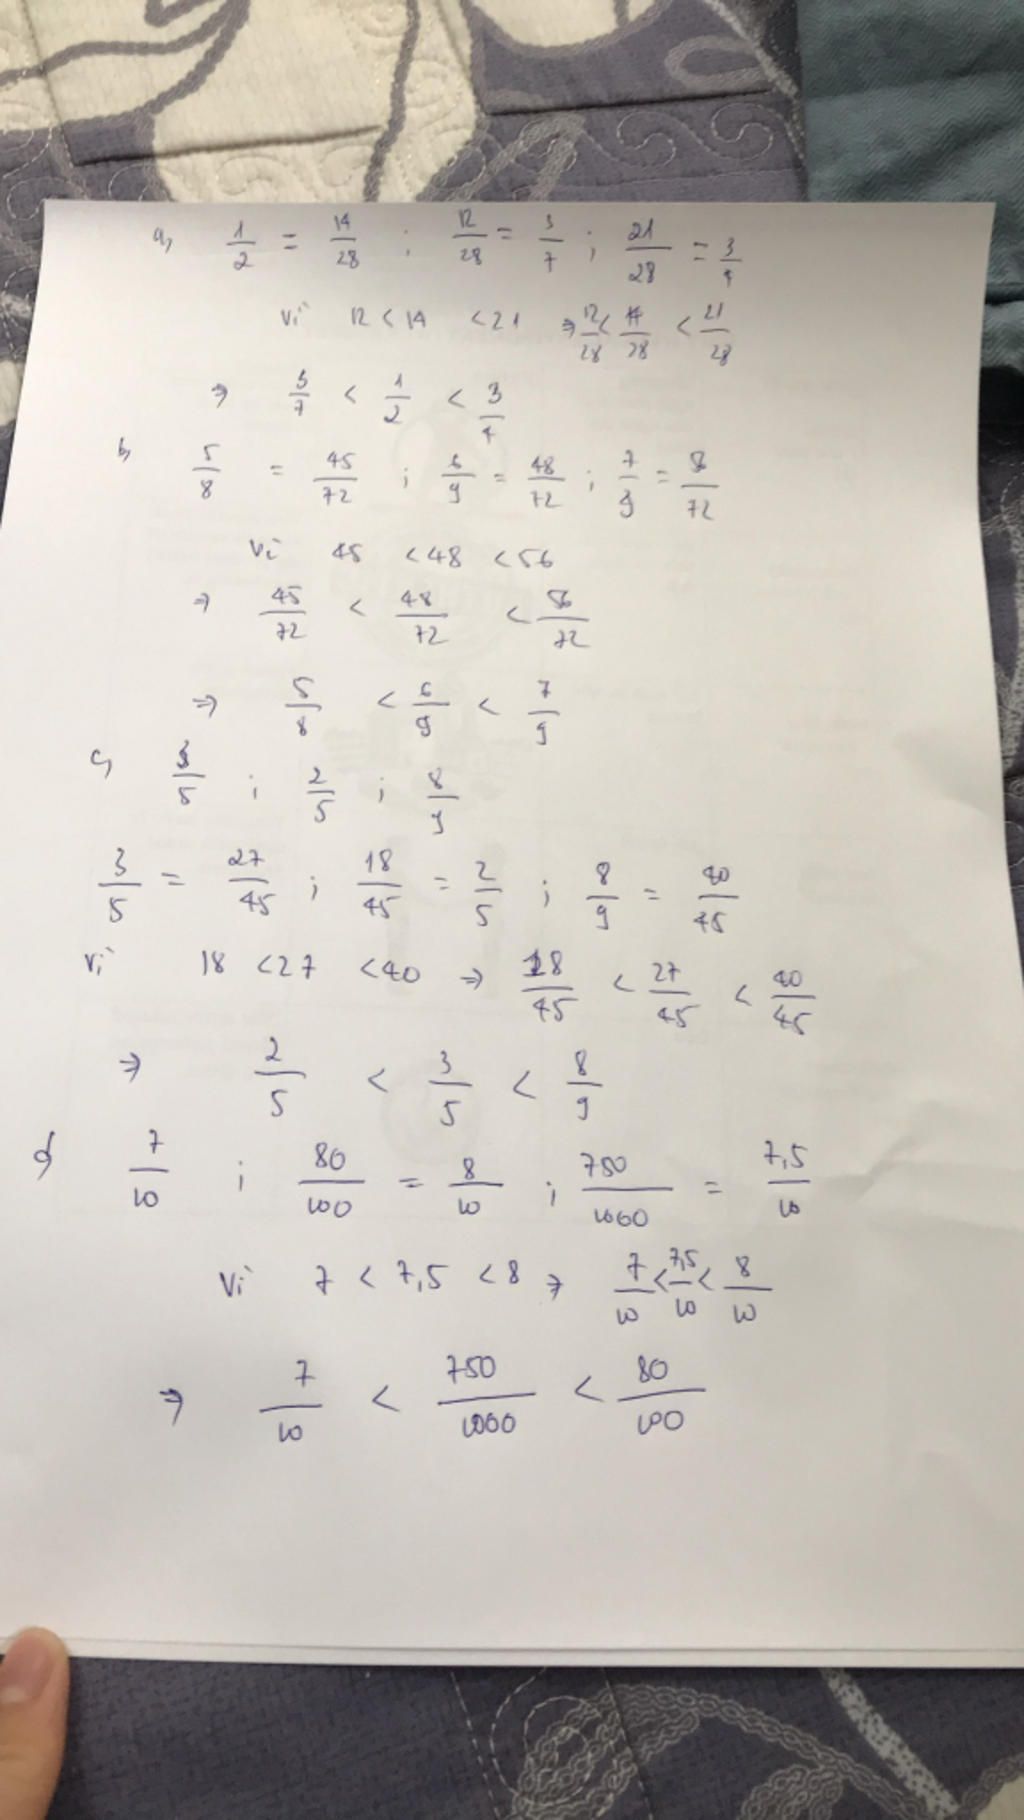 a, 1/2 = 14/28 ; 12/28 = 3/7 ; 21/28 = 3/4
Vì 12 < 14 < 21 ⇒ 12/28 < 14/28 < 21/28
⇒ 3/7 < 1/2 < 3/4
b, 5/8 = 45/72 ; 6/9 = 48/72 ; 7/9 = 56/72
Vì 45 < 48 < 56
⇒ 45/72 < 48/72 < 56/72
⇒ 5/8 < 6/9 < 7/9
c, 3/5 ; 2/5 ; 8/9
3/5 = 27/45 ; 18/45 = 2/5 ; 8/9 = 40/45
Vì 18 < 27 < 40 ⇒ 18/45 < 27/45 < 40/45
⇒ 2/5 < 3/5 < 8/9
d 7/10 ; 80/100 = 8/10 ; 750/1000 = 7,5/10
Vì 7 < 7,5 < 8 ⇒ 7/10 < 7,5/10 < 8/10
⇒ 7/10 < 750/1000 < 80/100